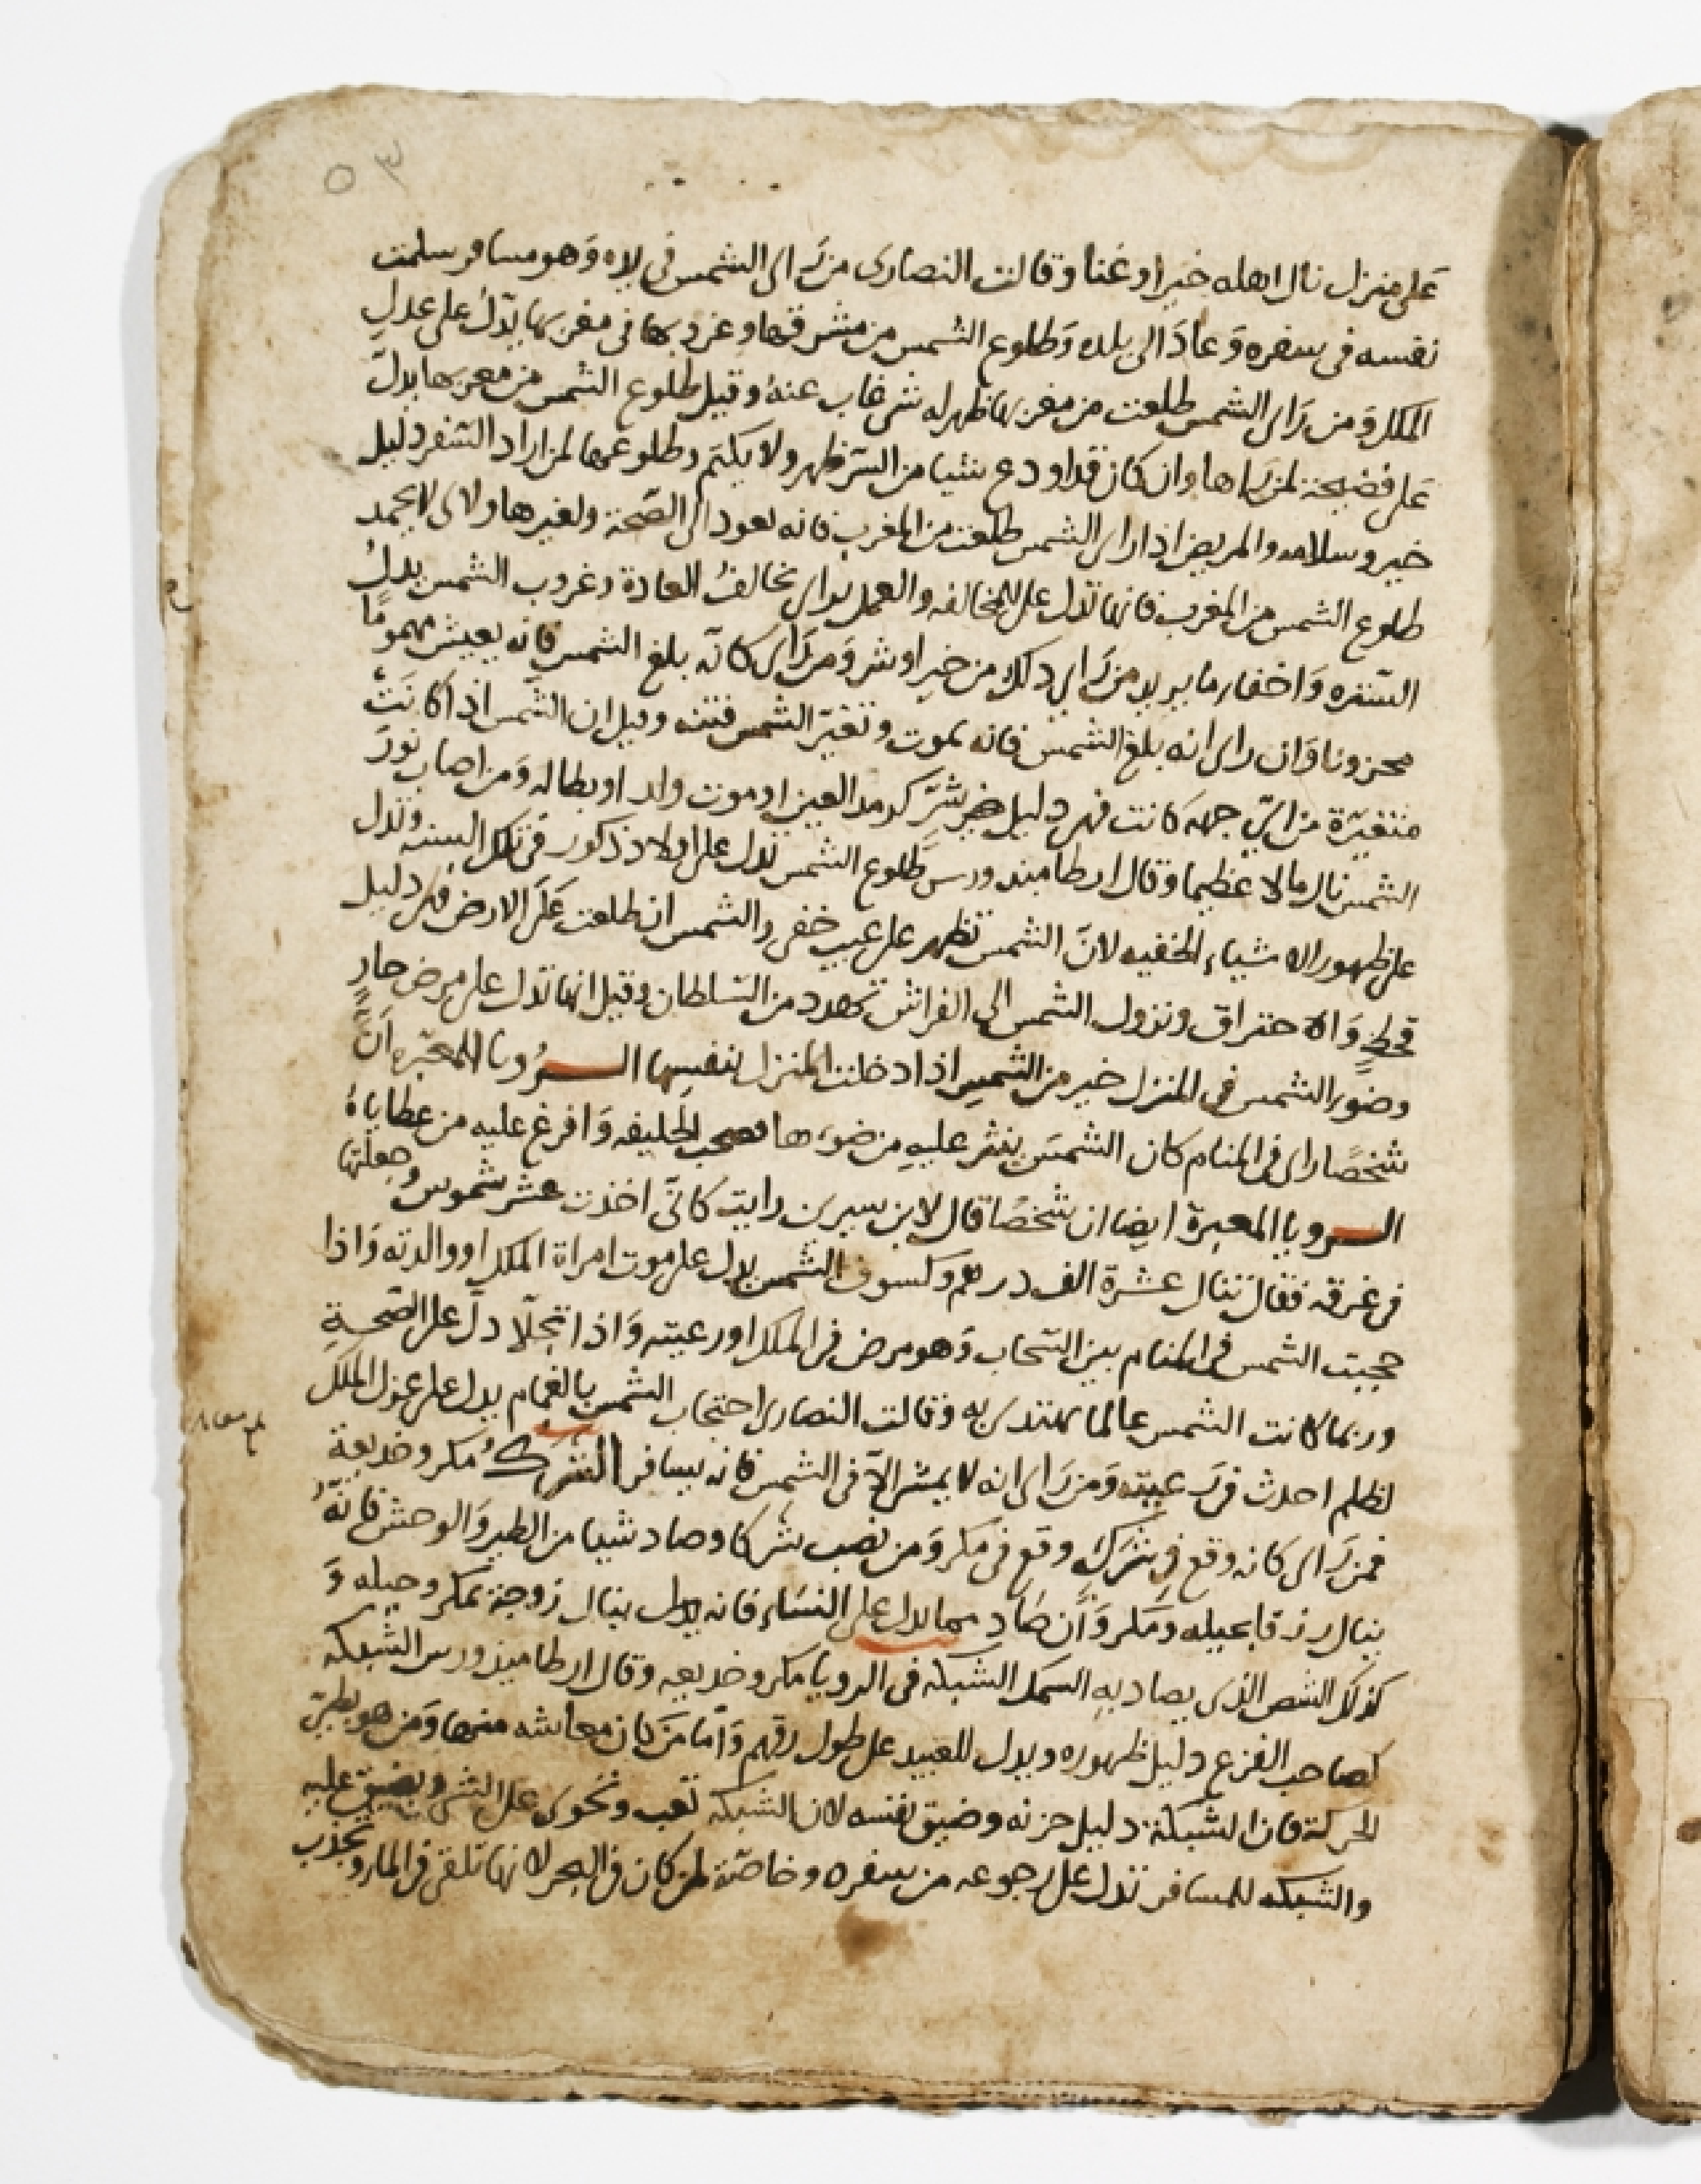 ٥٣
على منزل نال اهله خيرا وغنا وقالت النصارى من رَاى الشمس فى بلاه وَهو مسافر سلمت
نفسه فى سفره وَعادَ الى بلده وَطلوع الشمس من مشرقها وغروبها فى مغربها يدّل على عدل
الملك وَمن رَاى الشمس طلعت من مغربها ظهر له شى غاب عنهُ وقيل طلوع الشمس من مغربها يدل
على فضيحة لمن راها وان كان قد اودع شيا من السّر ظهر ولا يكتم وطلوعها لمن اراد السّفر دليل
خير وسلامه والمريض اذا راى الشمس طلعت من المغرب فانه يعود الى الصّحة ولغيرها ولاى لا يحمد
طلوع الشمس من المغرب فانها تدل على المخالفه والعمل براى يخالفُ العادة وغروب الشمس يدلُ
السّتره وَاخفاء ما يريد من رَاى ذلك من خير اوشر وَمن رَاى كانّه بلغ الشمس فانه يعيش مهمومًا
محزونا وَان راى انه بلغ الشمس فانه يموت وتغيّر الشمس فتنه وقيل ان الشّمس اذا كانَت
متغيّرة من اىّ جهه كانت فهى دليل خير شرّ كرمد العين او موت ولد او بطاله وَمن اصاب نورَ
الشمس نال مالا عظيما وقال ارطاميدورس طلوع الشمس تدل على اولاد ذكور فى تلك السنه وتدل
على ظهور الاشياء الخفيه لانّ الشمس تظهر على عيب خفى والشمس ان طلعت عَلى الارض فهى دليل
قحطٍ وَالاحتراق ونزول الشمس الى الفراش تهدد من السّلطان وقيل انها تدل على مرض حارٍ
وضوء الشمس فى المنزل خير من الشمس اذا دخلت المنزل بنفسها الــرُويا المعبّره انّ
شخصًا راى فى المنام كان الشمسَ ينثر عليهِ من ضوءها فصحب الخليفه وَافرغ عليه من عطاياهُ
الــرويا المعبرة ايضا ان شخصًا قال لابن سيرين رايت كانّى اخذت عشر شموس وجعلتها
فى غرقه فقال تنال عشرة الف درهم وكسوف الشمس يدل على موت امراة الملك او والدته وَاذا
حجبت الشمس فى المنام بين السّحاب وَهو مرض فى الملك او رعيته وَاذا انجلا دل على الصّحةِ
وربما كانت الشمس عالما يهتدى به وقالت النصارى احتجاب الشمس بالغمام يدل على عزل الملك
لظلم احدث فى رَعيته وَمن رَاى انه لا يمشى الا فى الشمس فانه يسافر الشرك مكر وخديعة
فمن رَاى كانه وقع فى شرَكٍ وقع فى مكر وَمن نصب شركا وصاد شيا من الطير وَالوحش فانّهُ
ينال رزقا بحيله وَمكر وَان صَادِ مما يدل على النسَاء فانه يدل ينال زوجة بمكر وحيله وَ
كذلك الشص الذى يصاد بهِ السمك الشبكه فى الرويا مكر وخديعه وقال ارطاميدورس الشبكه
لصاحب الفزع دليل ظهوره ويدل للعبيد على طول رقهم وَامّا من كان معاشه منها وَمن هو بطى
الحركة فان الشبكة دليل حزنه وضيق نفسه لان الشبكه تعب وتحوى على الشى ويضيق عليه
والشبكه للمسافر تدل على رجوعه من سفره وخاصّة لمن كان فى البحر لانها تلقى فى الماء وتجذب